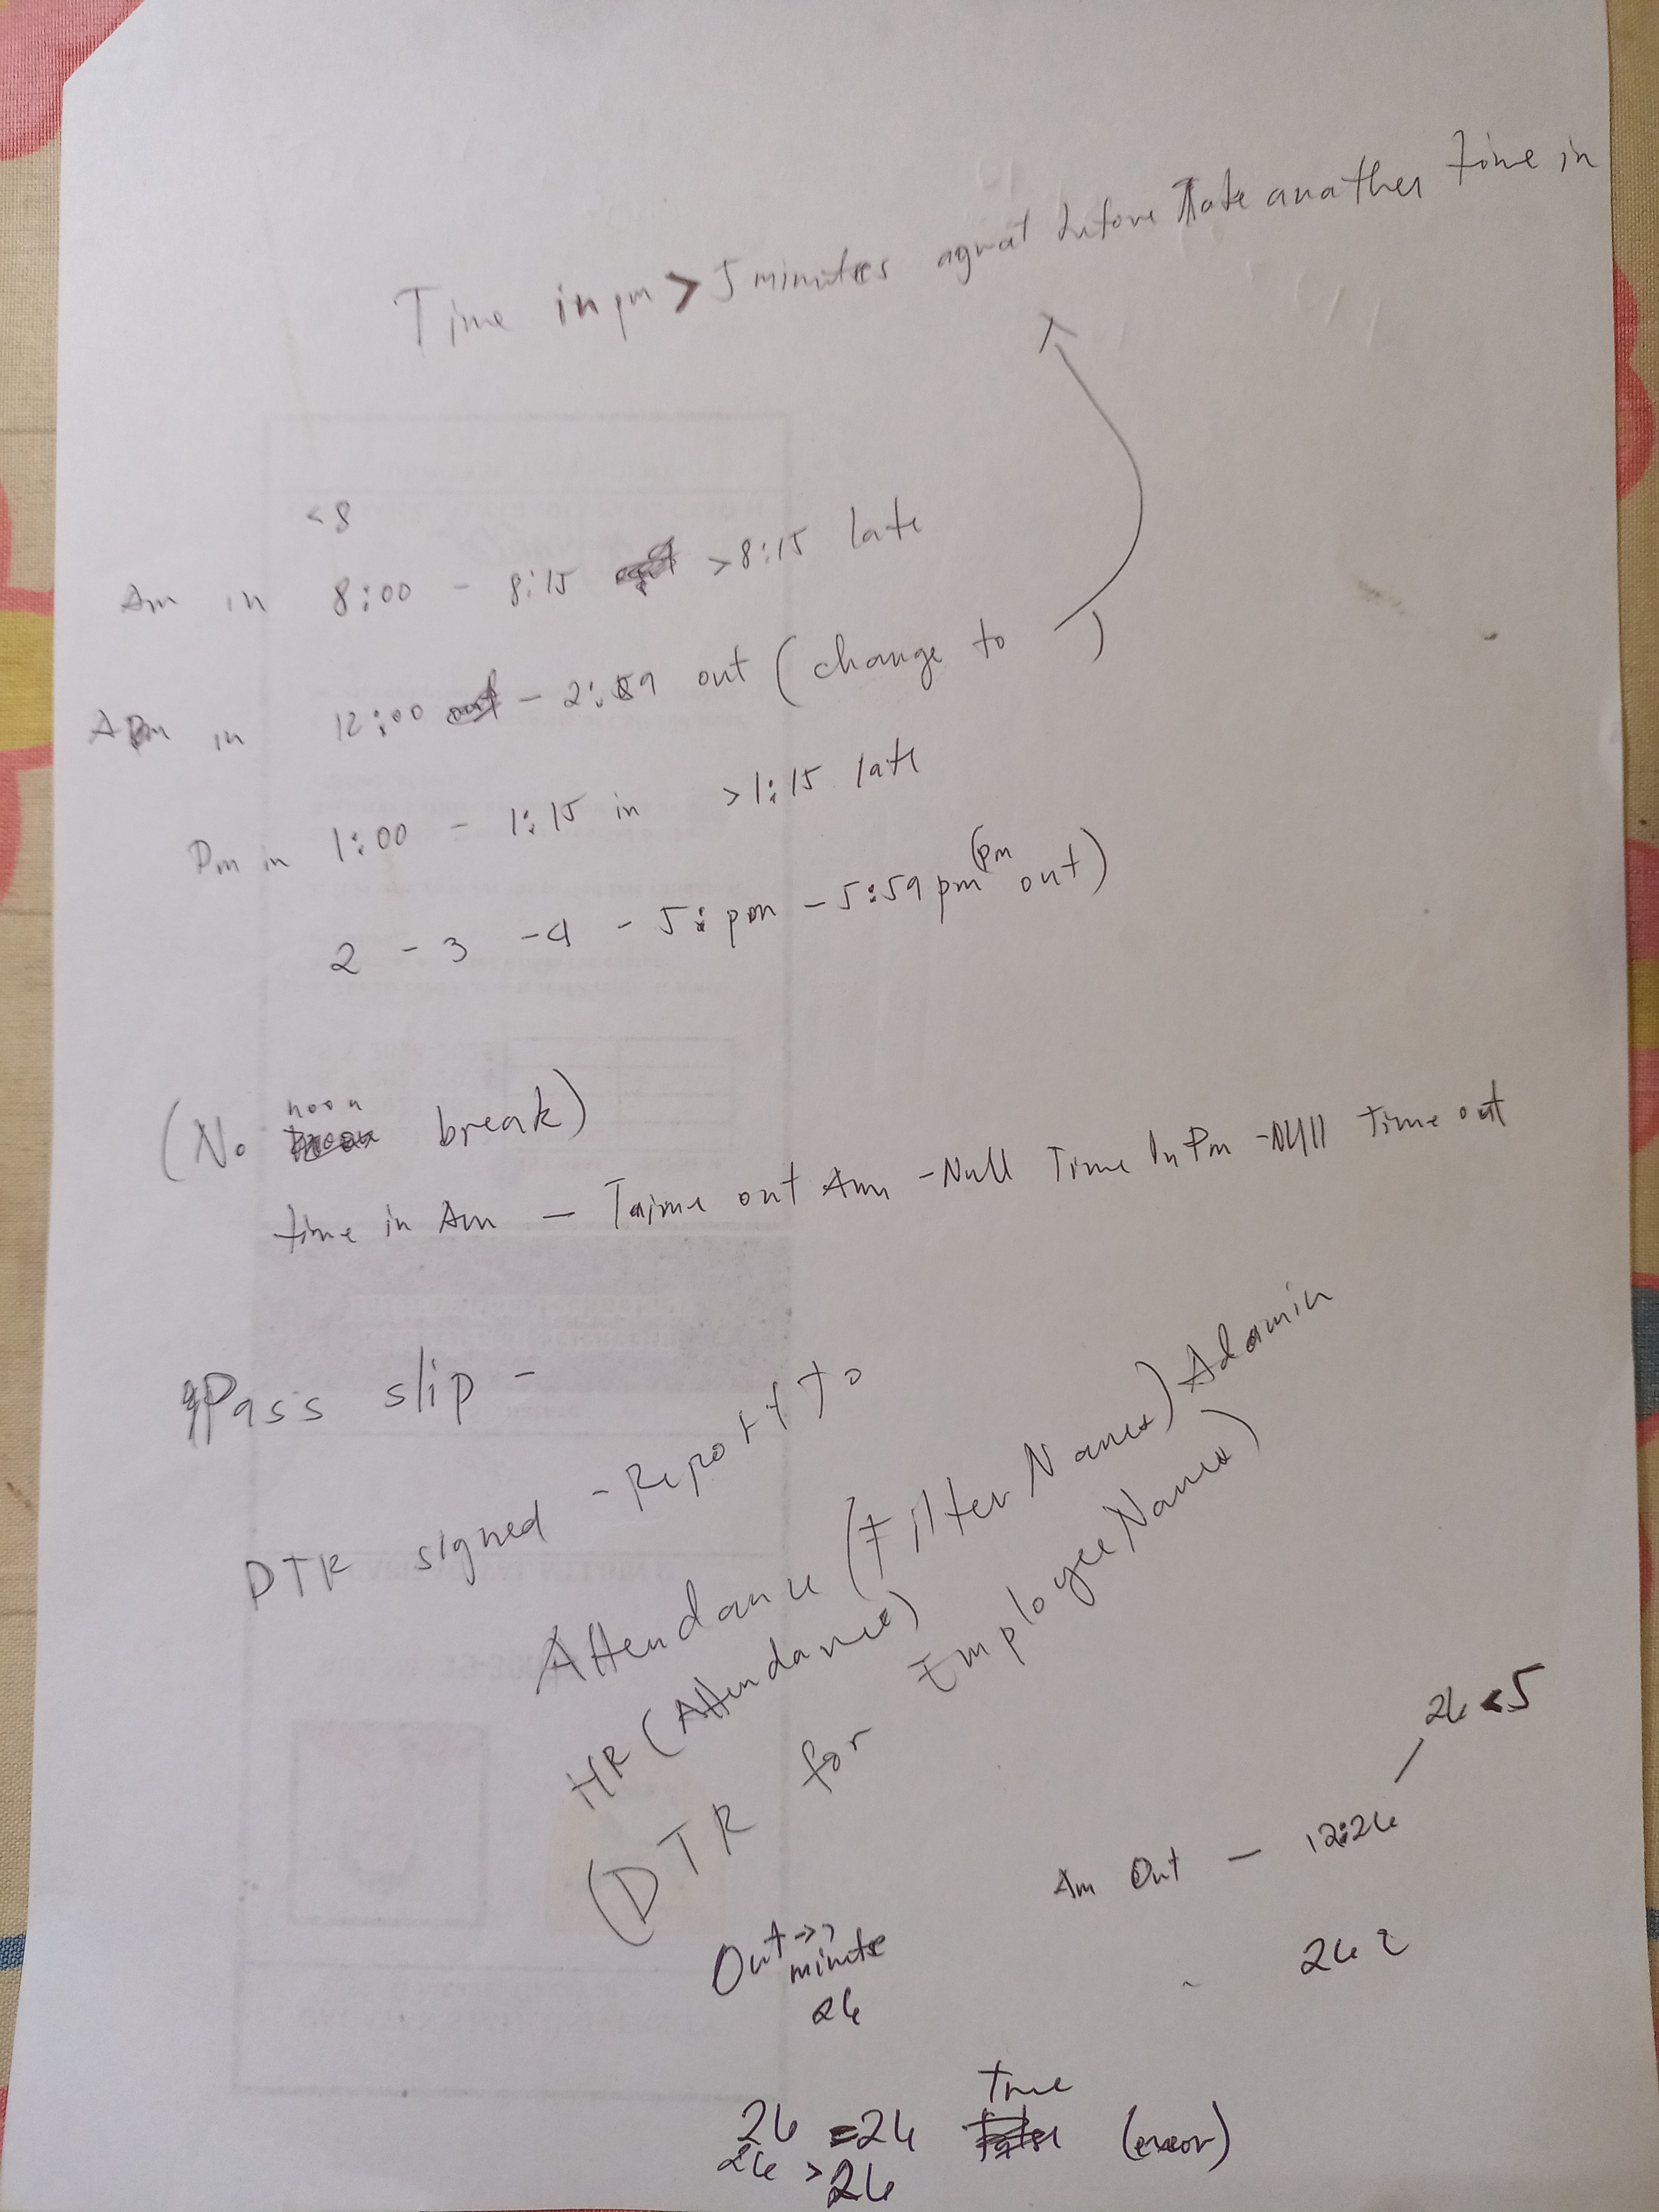 Time in pm > 5 minutes before Take another time in
< 8
Am in 8:00 - 8:15 > 8:15 late
in 12:00 - 2:59 out (change to )
Pm in 1:00 - 1:15 in > 1:15 late
2 - 3 - 4 - 5: pm - 5:59 pm (pm out)
(No noon break)
time in Am - Taime out Am - Null Time In Pm - Null time out
Pass slip -
DTR signed - Report to
Attendance (Filter Names) Adamin
HR (Attendance)
(DTR for Employee Names)
26 < 5
Am Out - 12:26
Out -> minute
26
26
26 = 26 true (error)
26 > 26